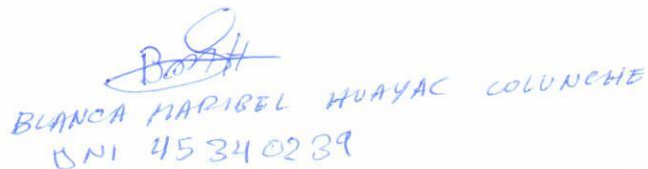 BLANCA MARIBEL HUAYAC COLUNCHE
DNI 45340239